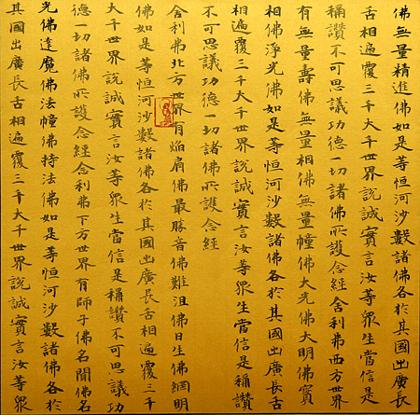 佛無量精進佛如是等恒河沙數諸佛各於其國出廣長
舌相遍覆三千大千世界說誠實言汝等眾生當信是
稱讚不可思議功德一切諸佛所護念經舍利弗西方世界
有無量壽佛無量相佛無量幢佛大光佛大明佛寶
相佛淨光佛如是等恒河沙數諸佛各於其國出廣長舌
相遍覆三千大千世界說誠實言汝等眾生當信是稱讚
不可思議功德一切諸佛所護念經
舍利弗北方世界有焰肩佛最勝音佛難沮佛日生佛網明
佛如是等恒河沙數諸佛各於其國出廣長舌相遍覆三千
大千世界說誠實言汝等眾生當信是稱讚不可思議功
德一切諸佛所護念經舍利弗下方世界有師子佛名聞佛名
光佛達魔佛法幢佛持法佛如是等恒河沙數諸佛各於
其國出廣長舌相遍覆三千大千世界說誠實言汝等眾